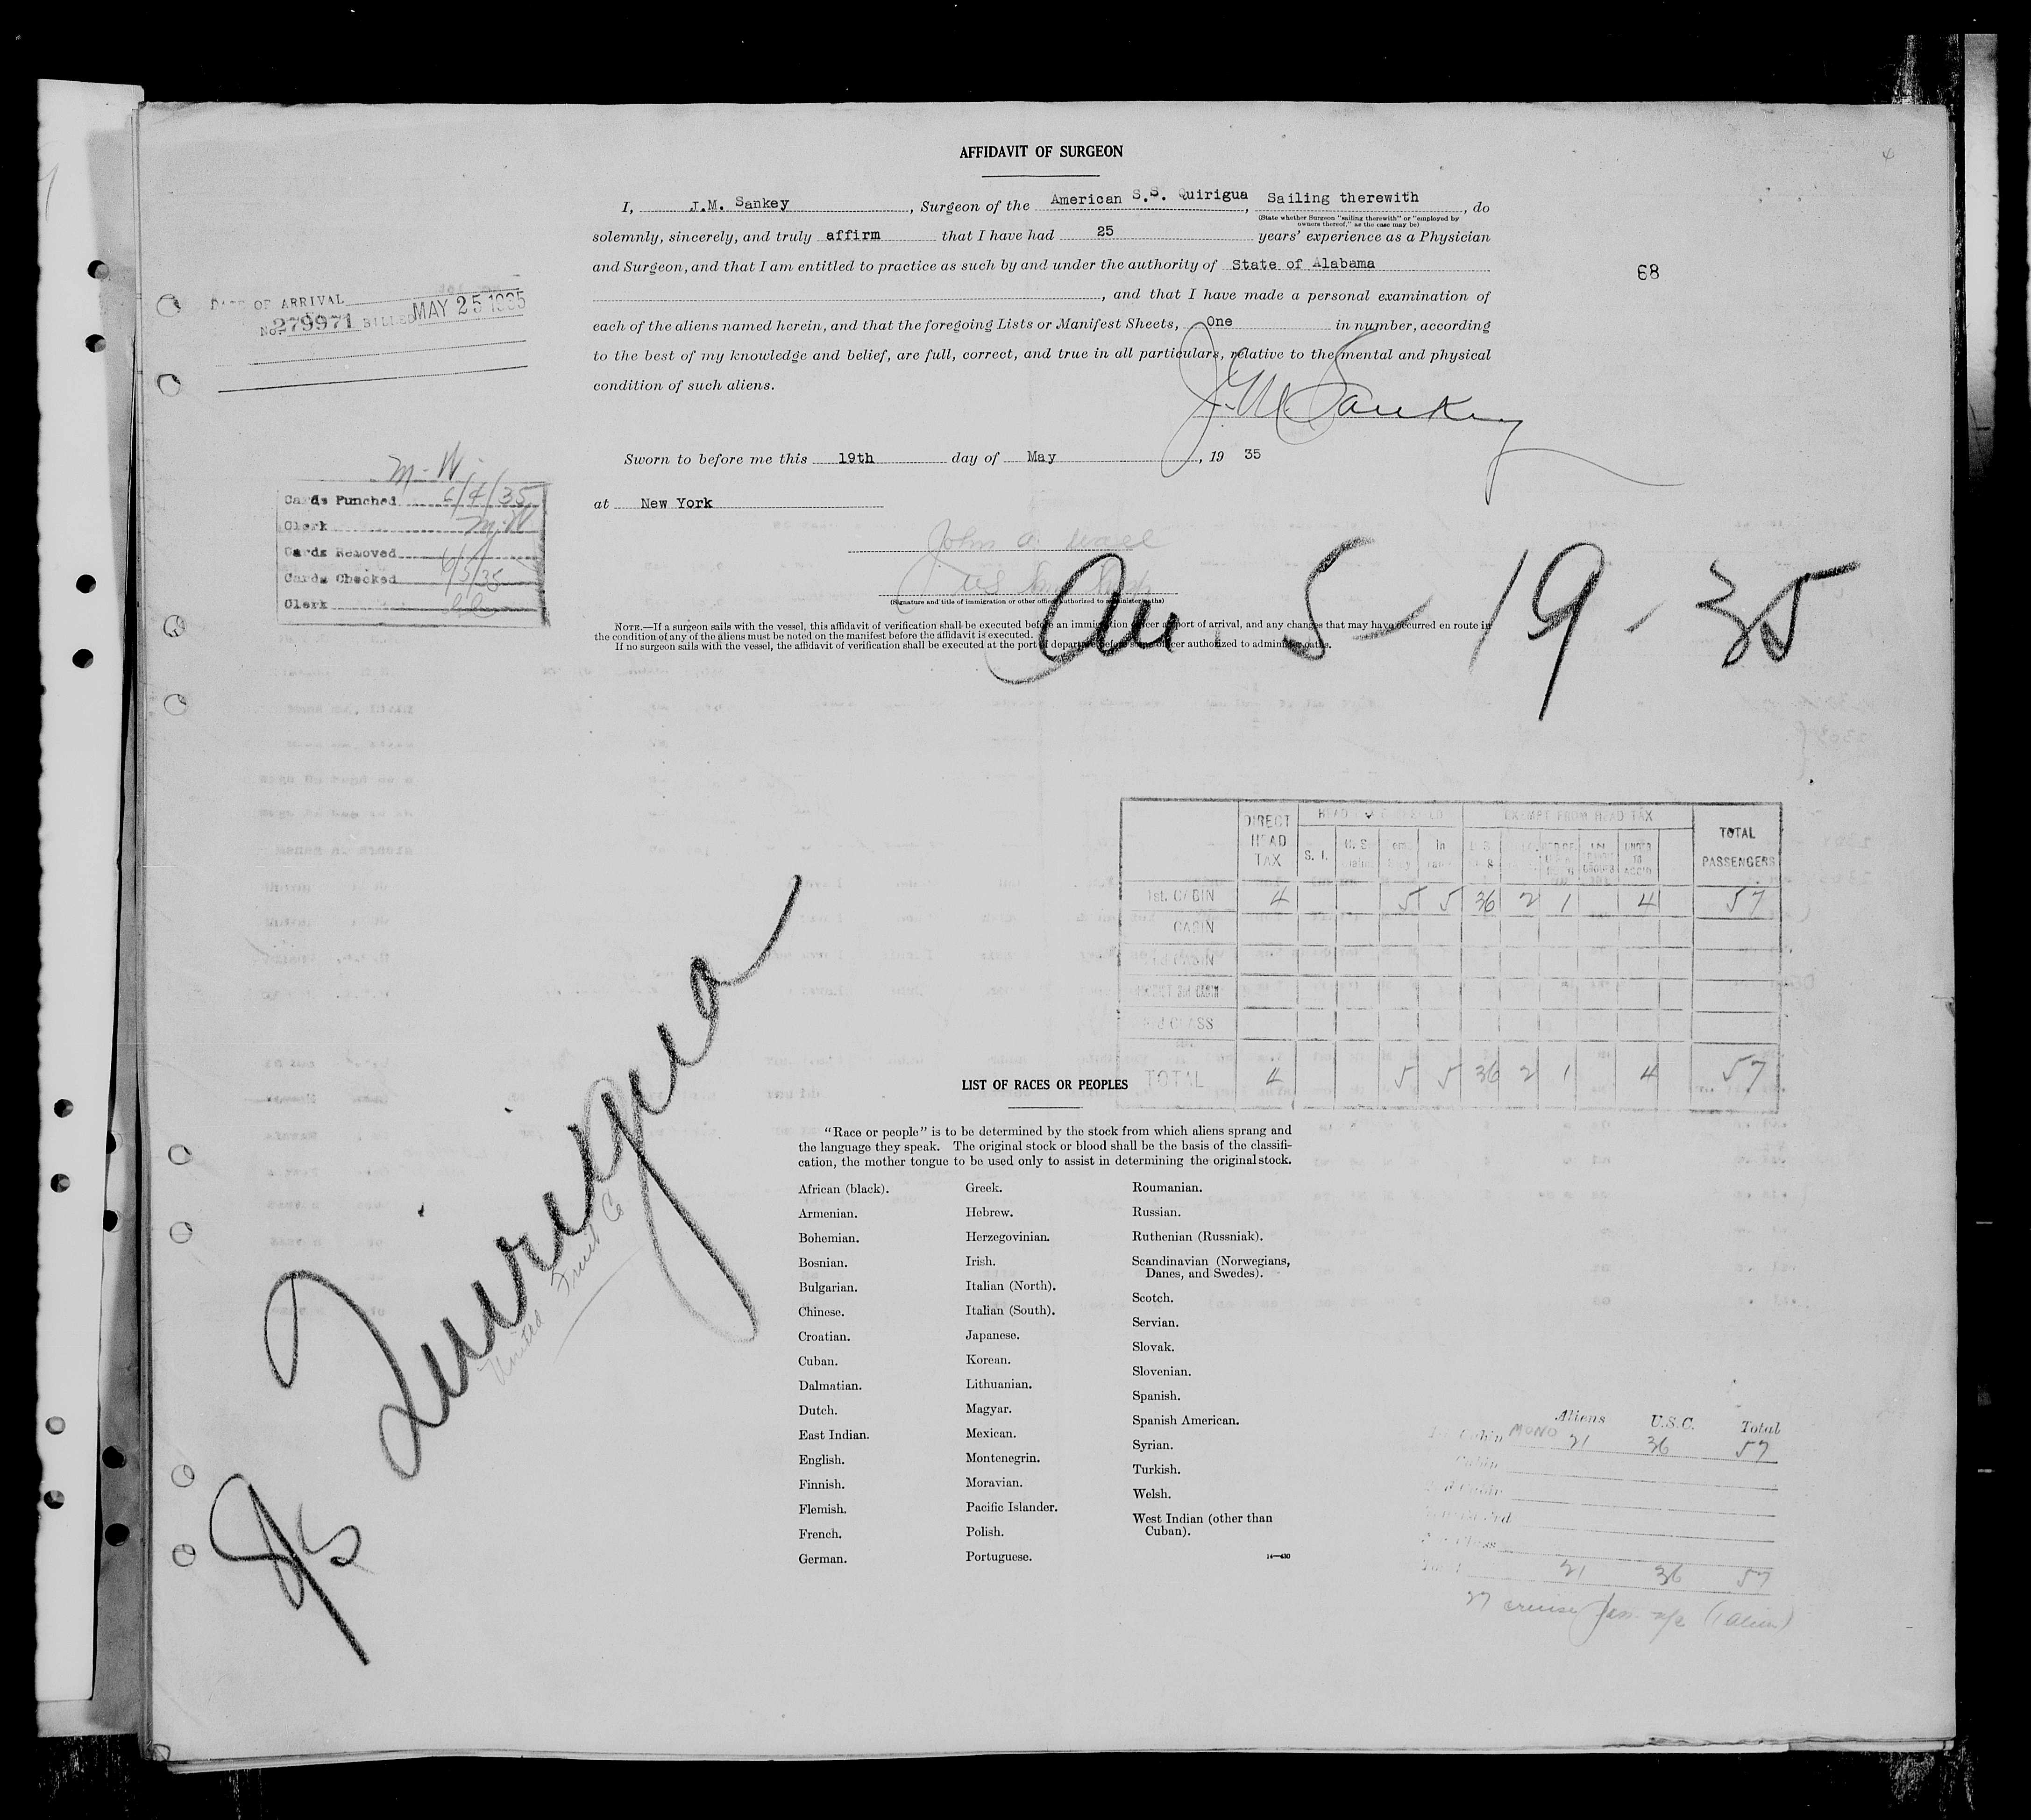 AFFIDAVIT OF SURGEON
I, J.M. Sankey, Surgeon of the American S.S. Quirigua, Sailing therewith, do
(State whether Surgeon "sailing therewith" or "employed by
owners thereof," as the case may be)
solemnly, sincerely, and truly affirm that I have had 25 years' experience as a Physician
and Surgeon, and that I am entitled to practice as such by and under the authority of State of Alabama
, and that I have made a personal examination of
each of the aliens named herein, and that the foregoing Lists or Manifest Sheets, One in number, according
to the best of my knowledge and belief, are full, correct, and true in all particulars, relative to the mental and physical
condition of such aliens.
68
DATE OF ARRIVAL
No. 279971 BILLED MAY 25 1935
J. M. Sankey
Sworn to before me this 19th day of May, 19 35
at New York
M-W
Cards Punched 6/4/35
Clerk M.W
Cards Removed
Cards Checked 6/5/35
Clerk
John A.
(Signature and title of immigration or other officer authorized to administer oaths)
5-19-35
NOTE.—If a surgeon sails with the vessel, this affidavit of verification shall be executed before an immigration officer at port of arrival, and any changes that may have occurred en route in
the condition of any of the aliens must be noted on the manifest before the affidavit is executed.
If no surgeon sails with the vessel, the affidavit of verification shall be executed at the port of departure before some officer authorized to administer oaths.
DIRECT HEAD TAX
S. I.
EXEMPT FROM HEAD TAX
TOTAL PASSENGERS
1st. CABIN 4 5 5 36 2 1 4 57
CABIN
TOTAL 4 5 5 36 2 1 4 57
S/S Quirigua
United Fruit Co
LIST OF RACES OR PEOPLES
"Race or people" is to be determined by the stock from which aliens sprang and
the language they speak. The original stock or blood shall be the basis of the classifi-
cation, the mother tongue to be used only to assist in determining the original stock.
African (black).
Armenian.
Bohemian.
Bosnian.
Bulgarian.
Chinese.
Croatian.
Cuban.
Dalmatian.
Dutch.
East Indian.
English.
Finnish.
Flemish.
French.
German.
Greek.
Hebrew.
Herzegovinian.
Irish.
Italian (North).
Italian (South).
Japanese.
Korean.
Lithuanian.
Magyar.
Mexican.
Montenegrin.
Moravian.
Pacific Islander.
Polish.
Portuguese.
Roumanian.
Russian.
Ruthenian (Russniak).
Scandinavian (Norwegians,
Danes, and Swedes).
Scotch.
Servian.
Slovak.
Slovenian.
Spanish.
Spanish American.
Syrian.
Turkish.
Welsh.
West Indian (other than
Cuban).
14—430
Aliens U.S.C. Total
Cabin MONO 21 36 57
Cabin
Total 21 36 57
27 cruise pass. (1 alien)